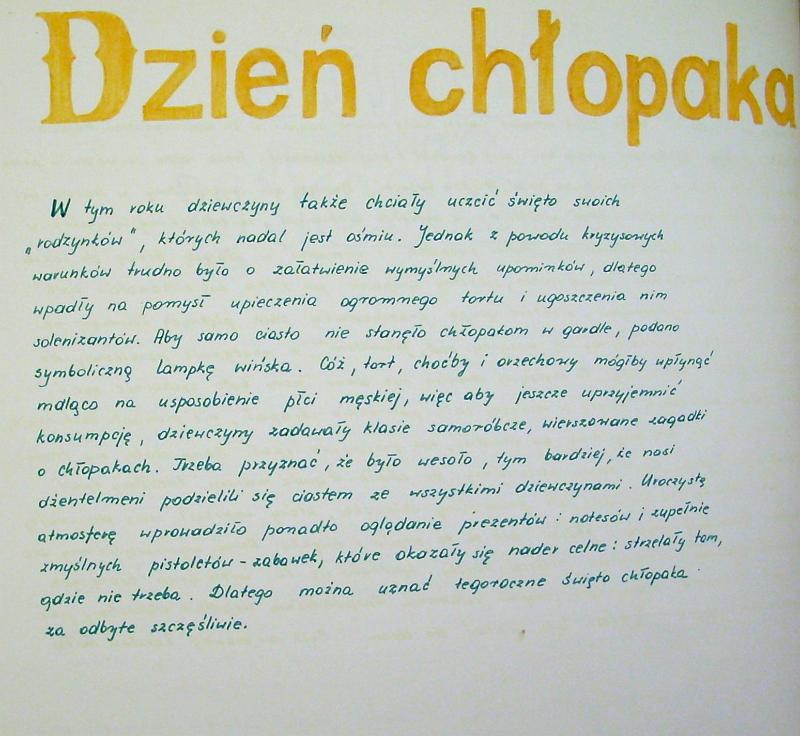 Dzień chłopaka
W tym roku dziewczyny także chciały uczcić święto swoich
„rodzynków", których nadal jest ośmiu. Jednak z powodu kryzysowych
warunków trudno było o załatwienie wymyślnych upominków, dlatego
wpadły na pomysł upieczenia ogromnego tortu i ugoszczenia nim
solenizantów. Aby samo ciasto nie stanęło chłopakom w gardle, podano
symboliczną lampkę wińska. Cóż, tort, choćby i orzechowy mógłby wpłynąć
mdląco na usposobienie płci męskiej, więc aby jeszcze uprzyjemnić
konsumpcję, dziewczyny zadawały klasie samoróbcze, wierszowane zagadki
o chłopakach. Trzeba przyznać, że było wesoło, tym bardziej, że nasi
dżentelmeni podzielili się ciastem ze wszystkimi dziewczynami. Uroczystą
atmosferę wprowadziło ponadto oglądanie prezentów: notesów i zupełnie
zmyślnych pistoletów - zabawek, które okazały się nader celne: strzelały tam,
gdzie nie trzeba. Dlatego można uznać tegoroczne święto chłopaka
za odbyte szczęśliwie.